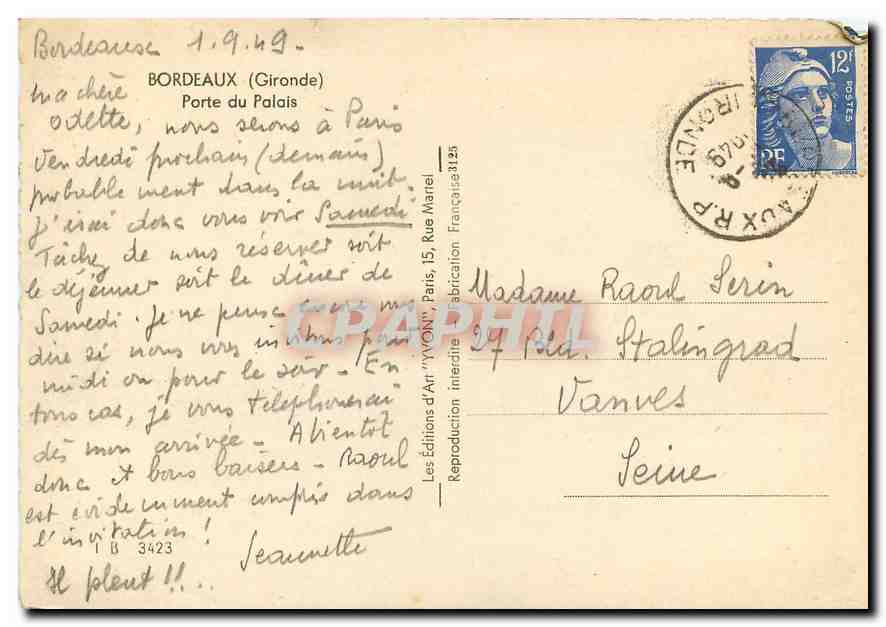 Bordeaux 1.9.49.
BORDEAUX (Gironde)
Porte du Palais
Ma chère
Odette, nous serons à Paris
Vendredi prochain (demain)
probablement dans la nuit.
J'irai donc vous voir Samedi
Tâchez de nous réserver soit
le déjeuner soit le dîner de
Samedi. Je ne pense
dire si nous vous invitons pour
midi ou pour le soir - En
tous cas, je vous téléphonerai
dès mon arrivée - A bientôt
donc et bons baisers - Raoul
est évidemment compris dans
l'invitation !
I B 3423
Jeannette
Il pleut !!...
Les Editions d'Art "YVON", Paris, 15, Rue Martel
Reproduction interdite Fabrication Française 3125
CPAPHIL
12F
POSTES
RF
AUX R.P.
GIRONDE
1949
Madame Raoul Serin
27 Bld. Stalingrad
Vanves
Seine